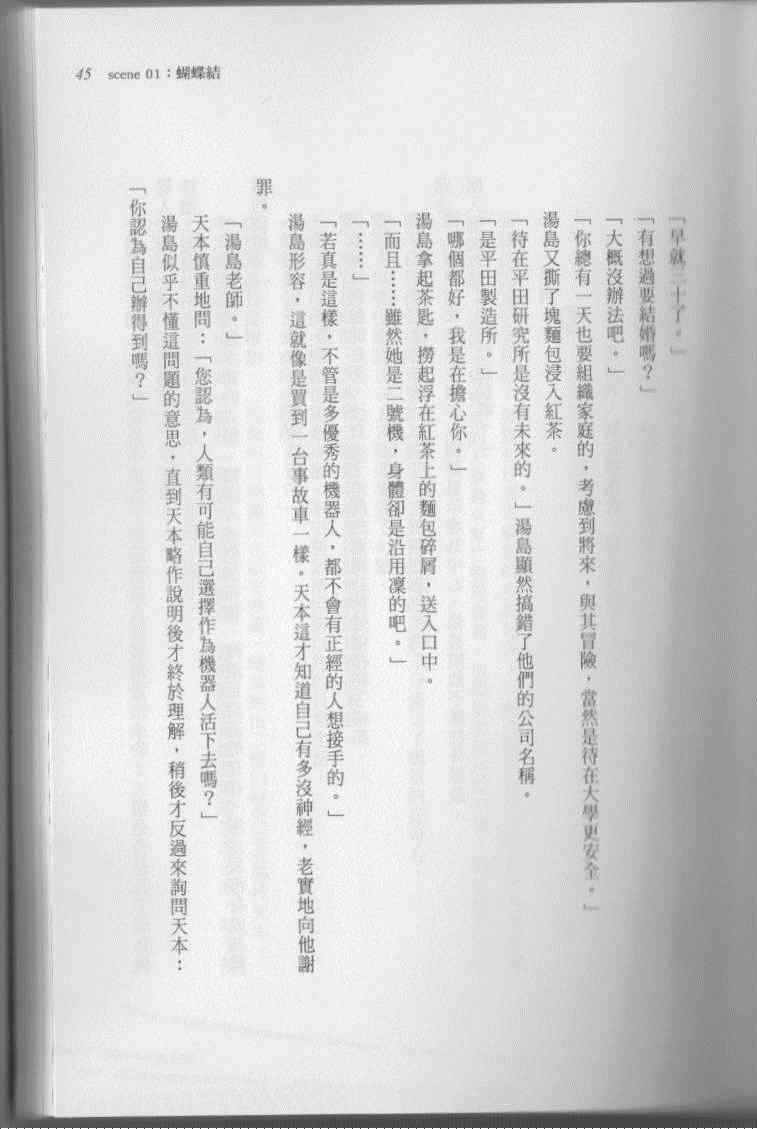 45 scene 01：蝴蝶結
「早就三十了。」
「有想過要結婚嗎？」
「大概沒辦法吧。」
「你總有一天也要組織家庭的，考慮到將來，與其冒險，當然是待在大學更安全。」
湯島又撕了塊麵包浸入紅茶。
「待在平田研究所是沒有未來的。」湯島顯然搞錯了他們的公司名稱。
「是平田製造所。」
「哪個都好，我是在擔心你。」
湯島拿起茶匙，撈起浮在紅茶上的麵包碎屑，送入口中。
「而且……雖然她是二號機，身體卻是沿用凜的吧。」
「……」
「若真是這樣，不管是多優秀的機器人，都不會有正經的人想接手的。」
湯島形容，這就像是買到一台事故車一樣。天本這才知道自己有多沒神經，老實地向他謝
罪。
「湯島老師。」
天本慎重地問：「您認為，人類有可能自己選擇作為機器人活下去嗎？」
湯島似乎不懂這問題的意思，直到天本略作說明後才終於理解，稍後才反過來詢問天本：
「你認為自己辦得到嗎？」